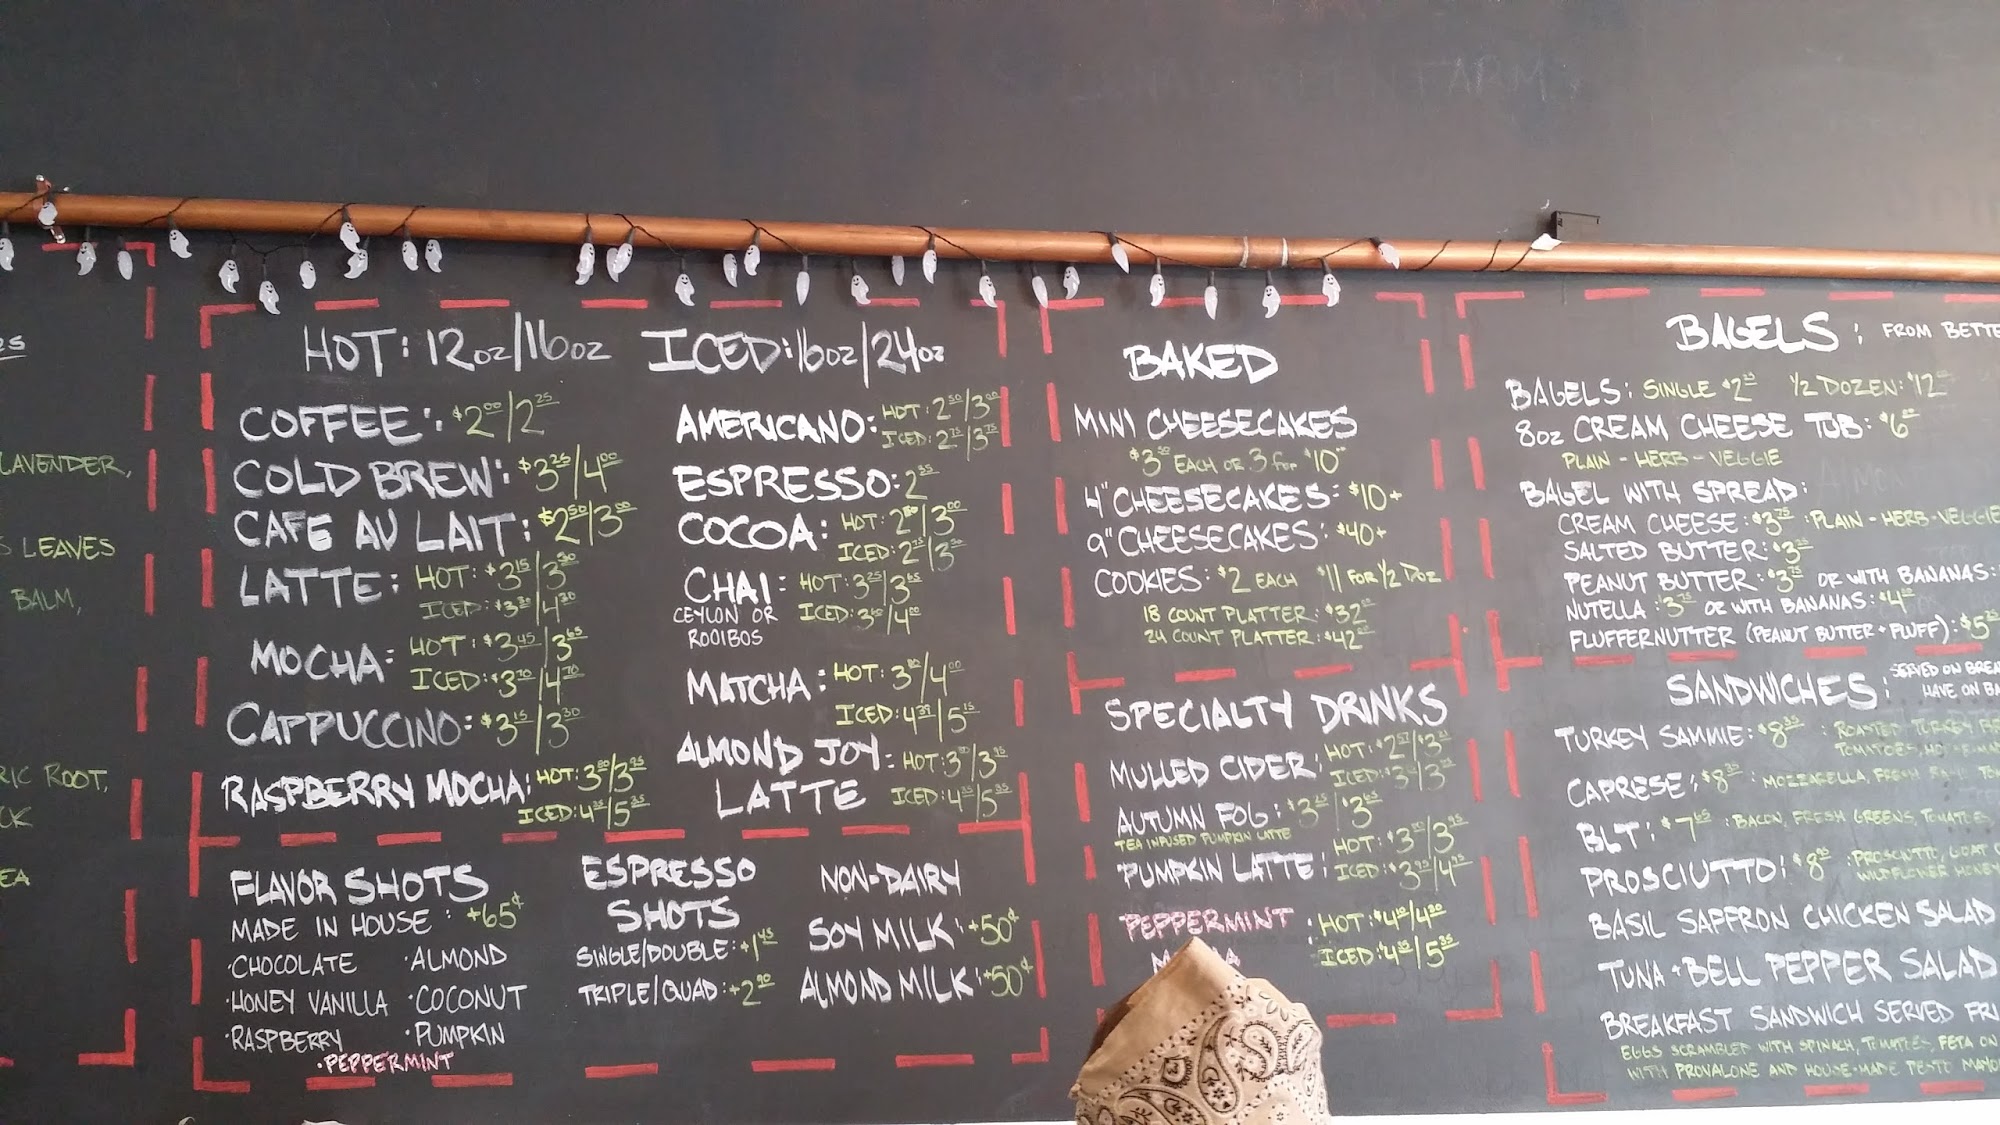 LAVENDER,
LEAVES
BALM,
RIC ROOT,
CK
EA
HOT: 12oz/16oz ICED: 16oz/24oz
COFFEE: $2.00/2.25
COLD BREW: $3.25/4.00
CAFE AU LAIT: $2.50/3.00
LATTE: HOT: $3.15/3.30
ICED: $3.30/4.30
MOCHA: HOT: $3.45/3.65
ICED: $3.70/4.70
CAPPUCCINO: $3.15/3.30
RASPBERRY MOCHA: HOT: 3.80/3.95
ICED: 4.35/5.35
AMERICANO: HOT: 2.50/3.00
ICED: 2.75/3.75
ESPRESSO: 2.35
COCOA: HOT: 2.50/3.00
ICED: 2.75/3.50
CHAI: HOT: 3.25/3.65
CEYLON OR ICED: 3.60/4.00
ROOIBOS
MATCHA: HOT: 3.80/4.00
ICED: 4.39/5.15
ALMOND JOY HOT: 3.80/3.95
LATTE ICED: 4.35/5.35
FLAVOR SHOTS
MADE IN HOUSE: +65¢
·CHOCOLATE ·ALMOND
·HONEY VANILLA ·COCONUT
·RASPBERRY ·PUMPKIN
·PEPPERMINT
ESPRESSO
SHOTS
SINGLE/DOUBLE: +1.45
TRIPLE/QUAD: +2.90
NON-DAIRY
SOY MILK: +50¢
ALMOND MILK: +50¢
BAKED
MINI CHEESECAKES
$3.50 EACH OR 3 FOR $10
4" CHEESECAKES: $10+
9" CHEESECAKES: $40+
COOKIES: $2 EACH $11 FOR 1/2 DOZ
18 COUNT PLATTER: $32
24 COUNT PLATTER: $42
SPECIALTY DRINKS
MULLED CIDER: HOT:
ICED:
AUTUMN FOG: $3.25/$3.65
TEA INFUSED PUMPKIN LATTE
PUMPKIN LATTE: HOT: $3.80/3.95
ICED: $3.95/4.95
PEPPERMINT: HOT: $4.10/4.20
ICED: $4.35/5.35
BAGELS: FROM BETTE
BAGELS: SINGLE $2.25 1/2 DOZEN: $12
8oz CREAM CHEESE TUB: $6
PLAIN - HERB - VEGGIE
BAGEL WITH SPREAD:
CREAM CHEESE: $3.75 :PLAIN-HERB-VEGGIE
SALTED BUTTER: $3.25
PEANUT BUTTER: $3.75 OR WITH BANANAS:
NUTELLA: $3.75 OR WITH BANANAS: $4
FLUFFERNUTTER (PEANUT BUTTER + FLUFF): $5
SANDWICHES: SERVED ON BREA
HAVE ON BA
TURKEY SAMMIE: $8 : ROASTED TURKEY
TOMATOES,
CAPRESE: $8 : MOZZARELLA, FRESH
BLT: $7.65 : BACON, FRESH GREENS, TOMATOES,
PROSCIUTTO: $8 : PROSCIUTTO, GOAT
WILDFLOWER HONEY
BASIL SAFFRON CHICKEN SALAD
TUNA + BELL PEPPER SALAD
BREAKFAST SANDWICH SERVED FRI
EGGS SCRAMBLED WITH SPINACH, TOMATOES, FETA ON
WITH PROVALONE AND HOUSE-MADE PESTO MAYO